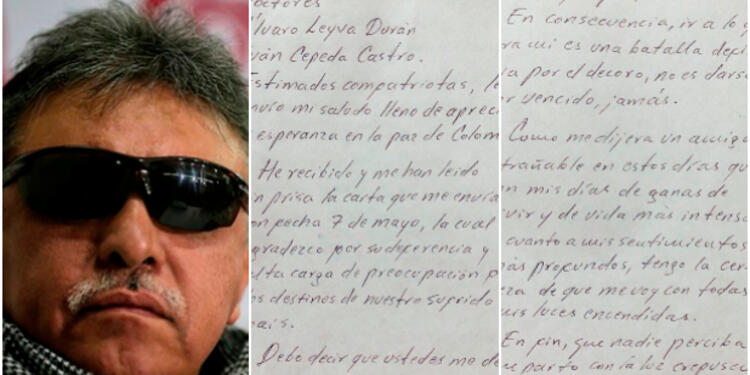 octores
lvaro Leyva Durán
ván Cepeda Castro.
Estimados compatriotas, le
nuro mi saludo lleno de apreci
esperanza en la paz de Colom
He recibido y me han leído
n prisa la carta que me envía
on fecha 7 de mayo, la cual
gradezco por su deferencia y
lta carga de preocupación p
os destinos de nuestro suprido
aís.
Debo decir que ustedes me de
En consecuencia, ir a lo
ra mi es una batalla deci
a por el decoro, no es darse
r vencido, jamás.
Como me dijera un amigo
trañable en estos días qu
n mis días de ganas de
vir y de vida más intensa
cuanto a mis sentimientos
ás profundos, tengo la cer
eza de que me voy con todas
is luces encendidas.
En fin, que nadie perciba
parto con la luz crepuscu